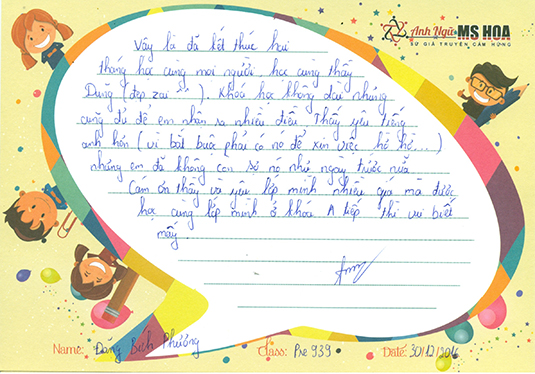 Anh Ngữ MS HOA
SỨ GIẢ TRUYỀN CẢM HỨNG
Vậy là đã kết thúc hai
tháng học cùng mọi người, học cùng thầy
Dũng (đẹp zai :). Khoá học không dài nhưng
cũng đủ để em nhận ra nhiều điều. Thấy yêu tiếng
anh hơn (vì bắt buộc phải có nó để xin việc hô hô...)
nhưng em đã không còn sợ nó như ngày trước nữa
Cảm ơn thầy và yêu lớp mình nhiều quá mà được
học cùng lớp mình ở khoá A tiếp thì vui biết
mấy.
Name: Đặng Bích Phương Class: Pre 939 Date: 30/12/2016